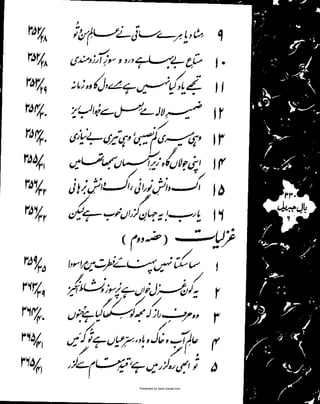 ۹ مٹا دیا مرے ساقی نے عالمِ من و تو ۳۵۲/۲۸
۱۰ متاعِ بے بہا ہے درد و سوزِ آرزو مندی ۳۵۲/۲۸
۱۱ تجھے یاد کیا نہیں ہے مرے دل کا وہ زمانہ ۳۵۳/۲۹
۱۲ ضمیرِ لالہ مے لعل سے ہوا لبریز ۳۵۴/۳۰
۱۳ وہی میری کم نصیبی وہی تیری بے نیازی ۳۵۴/۳۰
۱۴ اپنی جولاں گاہ زیرِ آسماں سمجھا تھا میں ۳۵۵/۳۱
۱۵ اک دانشِ نورانی، اک دانشِ برہانی ۳۵۶/۳۲
۱۶ یا رب یہ جہانِ گزراں خوب ہے لیکن ۳۵۶/۳۲
غزلیات (حصہ دوم)
۱ سما سکتا نہیں پہنائے فطرت میں مرا سودا ۳۵۹/۳۵
۲ یہ کون غزل خواں ہے پرسوز و نشاط انگیز ۳۶۳/۳۹
۳ وہ حرفِ راز کہ مجھ کو سکھا گیا ہے جنوں ۳۶۴/۴۰
۴ عالمِ آب و خاک و باد سرِ عیاں ہے تو کہ میں ۳۶۵/۴۱
۵ تو ابھی رہ گزر میں ہے قیدِ مقام سے گزر ۳۶۵/۴۱
۳۳۰
بالِ جبریل
Presented by www.ziaraat.com